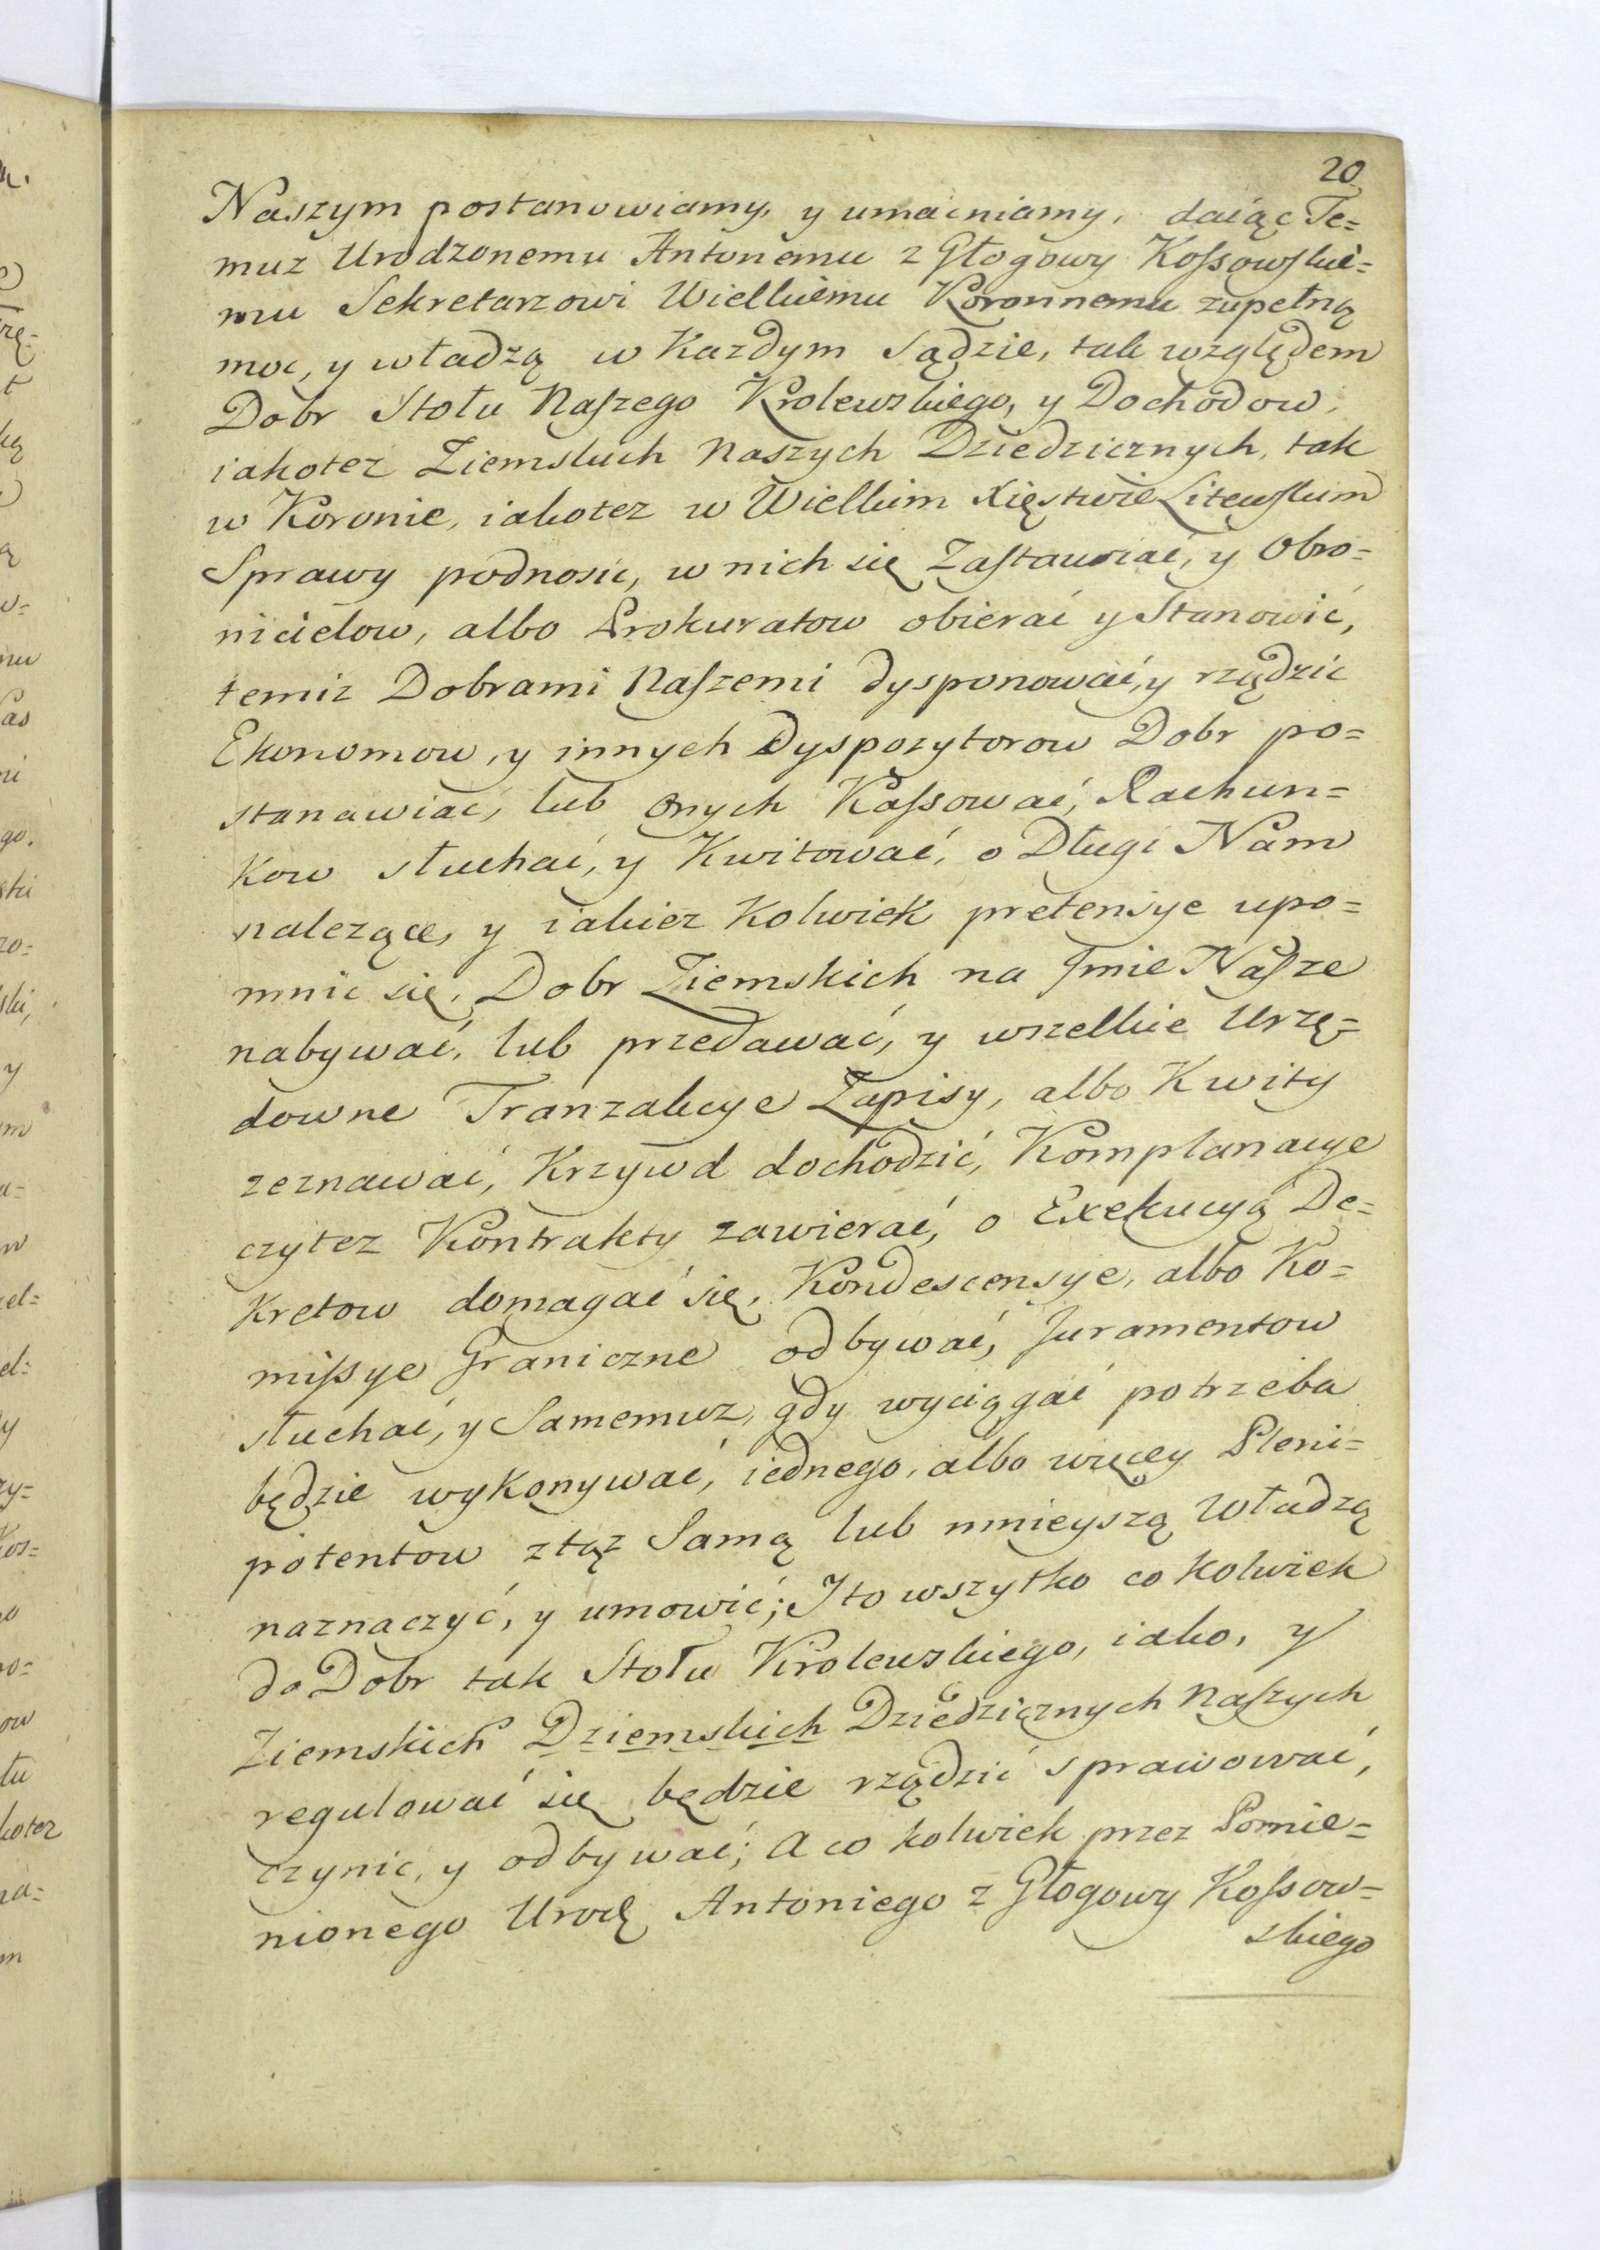 20
Naszym postanowiamy, y umacniamy, daiąc Te=
muz Urodzonemu Antonemu z Głogowy Kossowskie=
mu Sekretarzowi Wielkiemu Koronnemu zupełną
moc, y władzą w Kazdym Sądzie, tak względem
Dobr Stołu Naszego Krolewskiego, y Dochodow,
iakotez Ziemskich Naszych Dziedzicznych, tak
w Koronie, iakotez w Wielkim Xięstwie Litewskim
Sprawy podnosic, w nich się Zastawiać, y Obro=
nicielow, albo Prokuratow obierać y Stanowić,
temiz Dobrami Naszemi dysponować, y rządzic
Ekonomow, y innych Dyspozytorow Dobr po=
stanawiać, lub onych Kassować, Rachun=
kow słuchać, y Kwitować, o Długi Nam
nalezące, y iakiez Kolwiek pretensye upo=
mnic się, Dobr Ziemskich na Jmie Nasze
nabywać, lub przedawać, y wszelkie Urzę=
downe Tranzakcye Zapisy, albo Kwity
zeznawać, Krzywd dochodzić, Komplanacye
czytez Kontrakty zawierać, o Exekucyą De=
kretow domagać się, Kondescensye, albo Ko=
missye Graniczne odbywać, Juramentow
słuchać, y Samemuz, gdy wyciągać potrzeba
będzie wykonywać, iednego, albo więcey Pleni=
potentow ztąz Samą lub mnieyszą Władzą
naznaczyć, y umowić; J to wszytko co kolwiek
do Dobr tak Stołu Krolewskiego, iako, y
Ziemskich Dziemskich Dziedzicznych Naszych
regulować się będzie rządzić sprawować,
czynic, y odbywać; A co kolwiek przez Pomie=
nionego Urodę Antoniego z Głogowy Kossow=
skiego